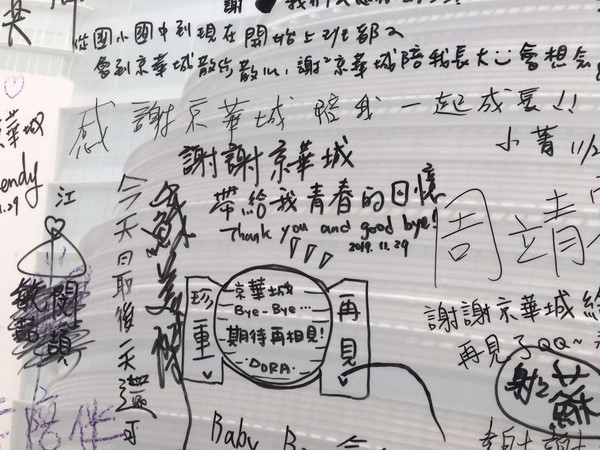 謝
從國小國中到現在開始上班都
會到京華城散步散心,謝謝京華城陪我長大 會想念
感謝京華城陪我一起成長!!
小菁 11/2
華城
endy
.29
江
謝謝京華城
帶給我青春的回憶
Thank you and good bye!
2019.11.29
今天最後一天還可
周靖
珍重
京華城
Bye-Bye...
期待再相見!
·DORA·
再見
謝謝京華城給
再見了QQ~
謝2
蘇
陪伴
Baby
謝謝